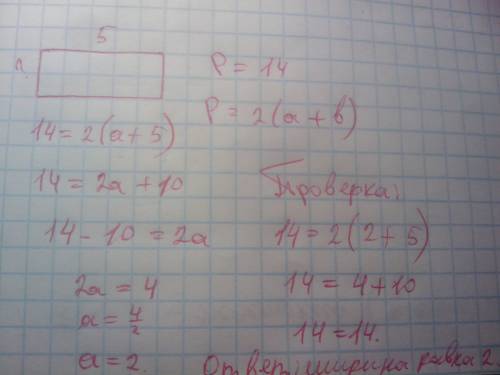 5
P = 14
P = 2(a + b)
14 = 2(a + 5)
14 = 2a + 10
14 - 10 = 2a
2a = 4
a = 4/2
a = 2.
Проверка:
14 = 2(2 + 5)
14 = 4 + 10
14 = 14.
Ответ: ширина равна 2.